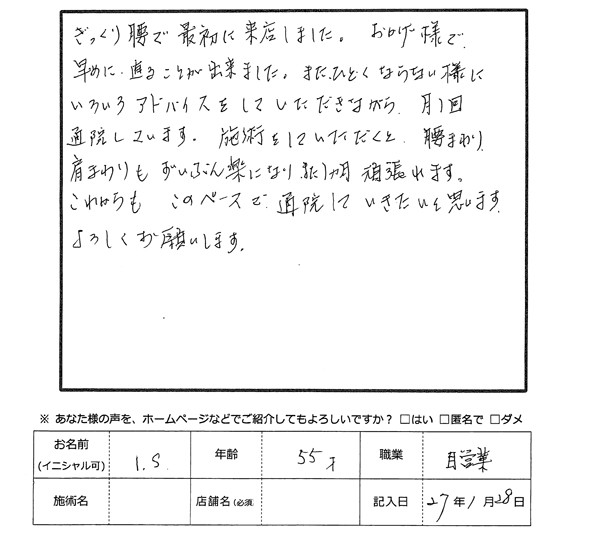 ぎっくり腰で最初に来店しました。 おかげ様で
早めに直ることが出来ました。また、ひどくならない様に
いろいろアドバイスをしていただきながら 月1回
通院しています。施術をしていただくと、腰まわり
肩まわりもずいぶん楽になり、また1カ月 頑張れます。
これからも このペースで 通院して いきたいと思います
よろしくお願いします。
※ あなた様の声を、ホームページなどでご紹介してもよろしいですか? □はい □匿名で □ダメ
お名前(イニシャル可) I.S. 年齢 55才 職業 自営業
施術名 店舗名(必須) 記入日 27年1月28日